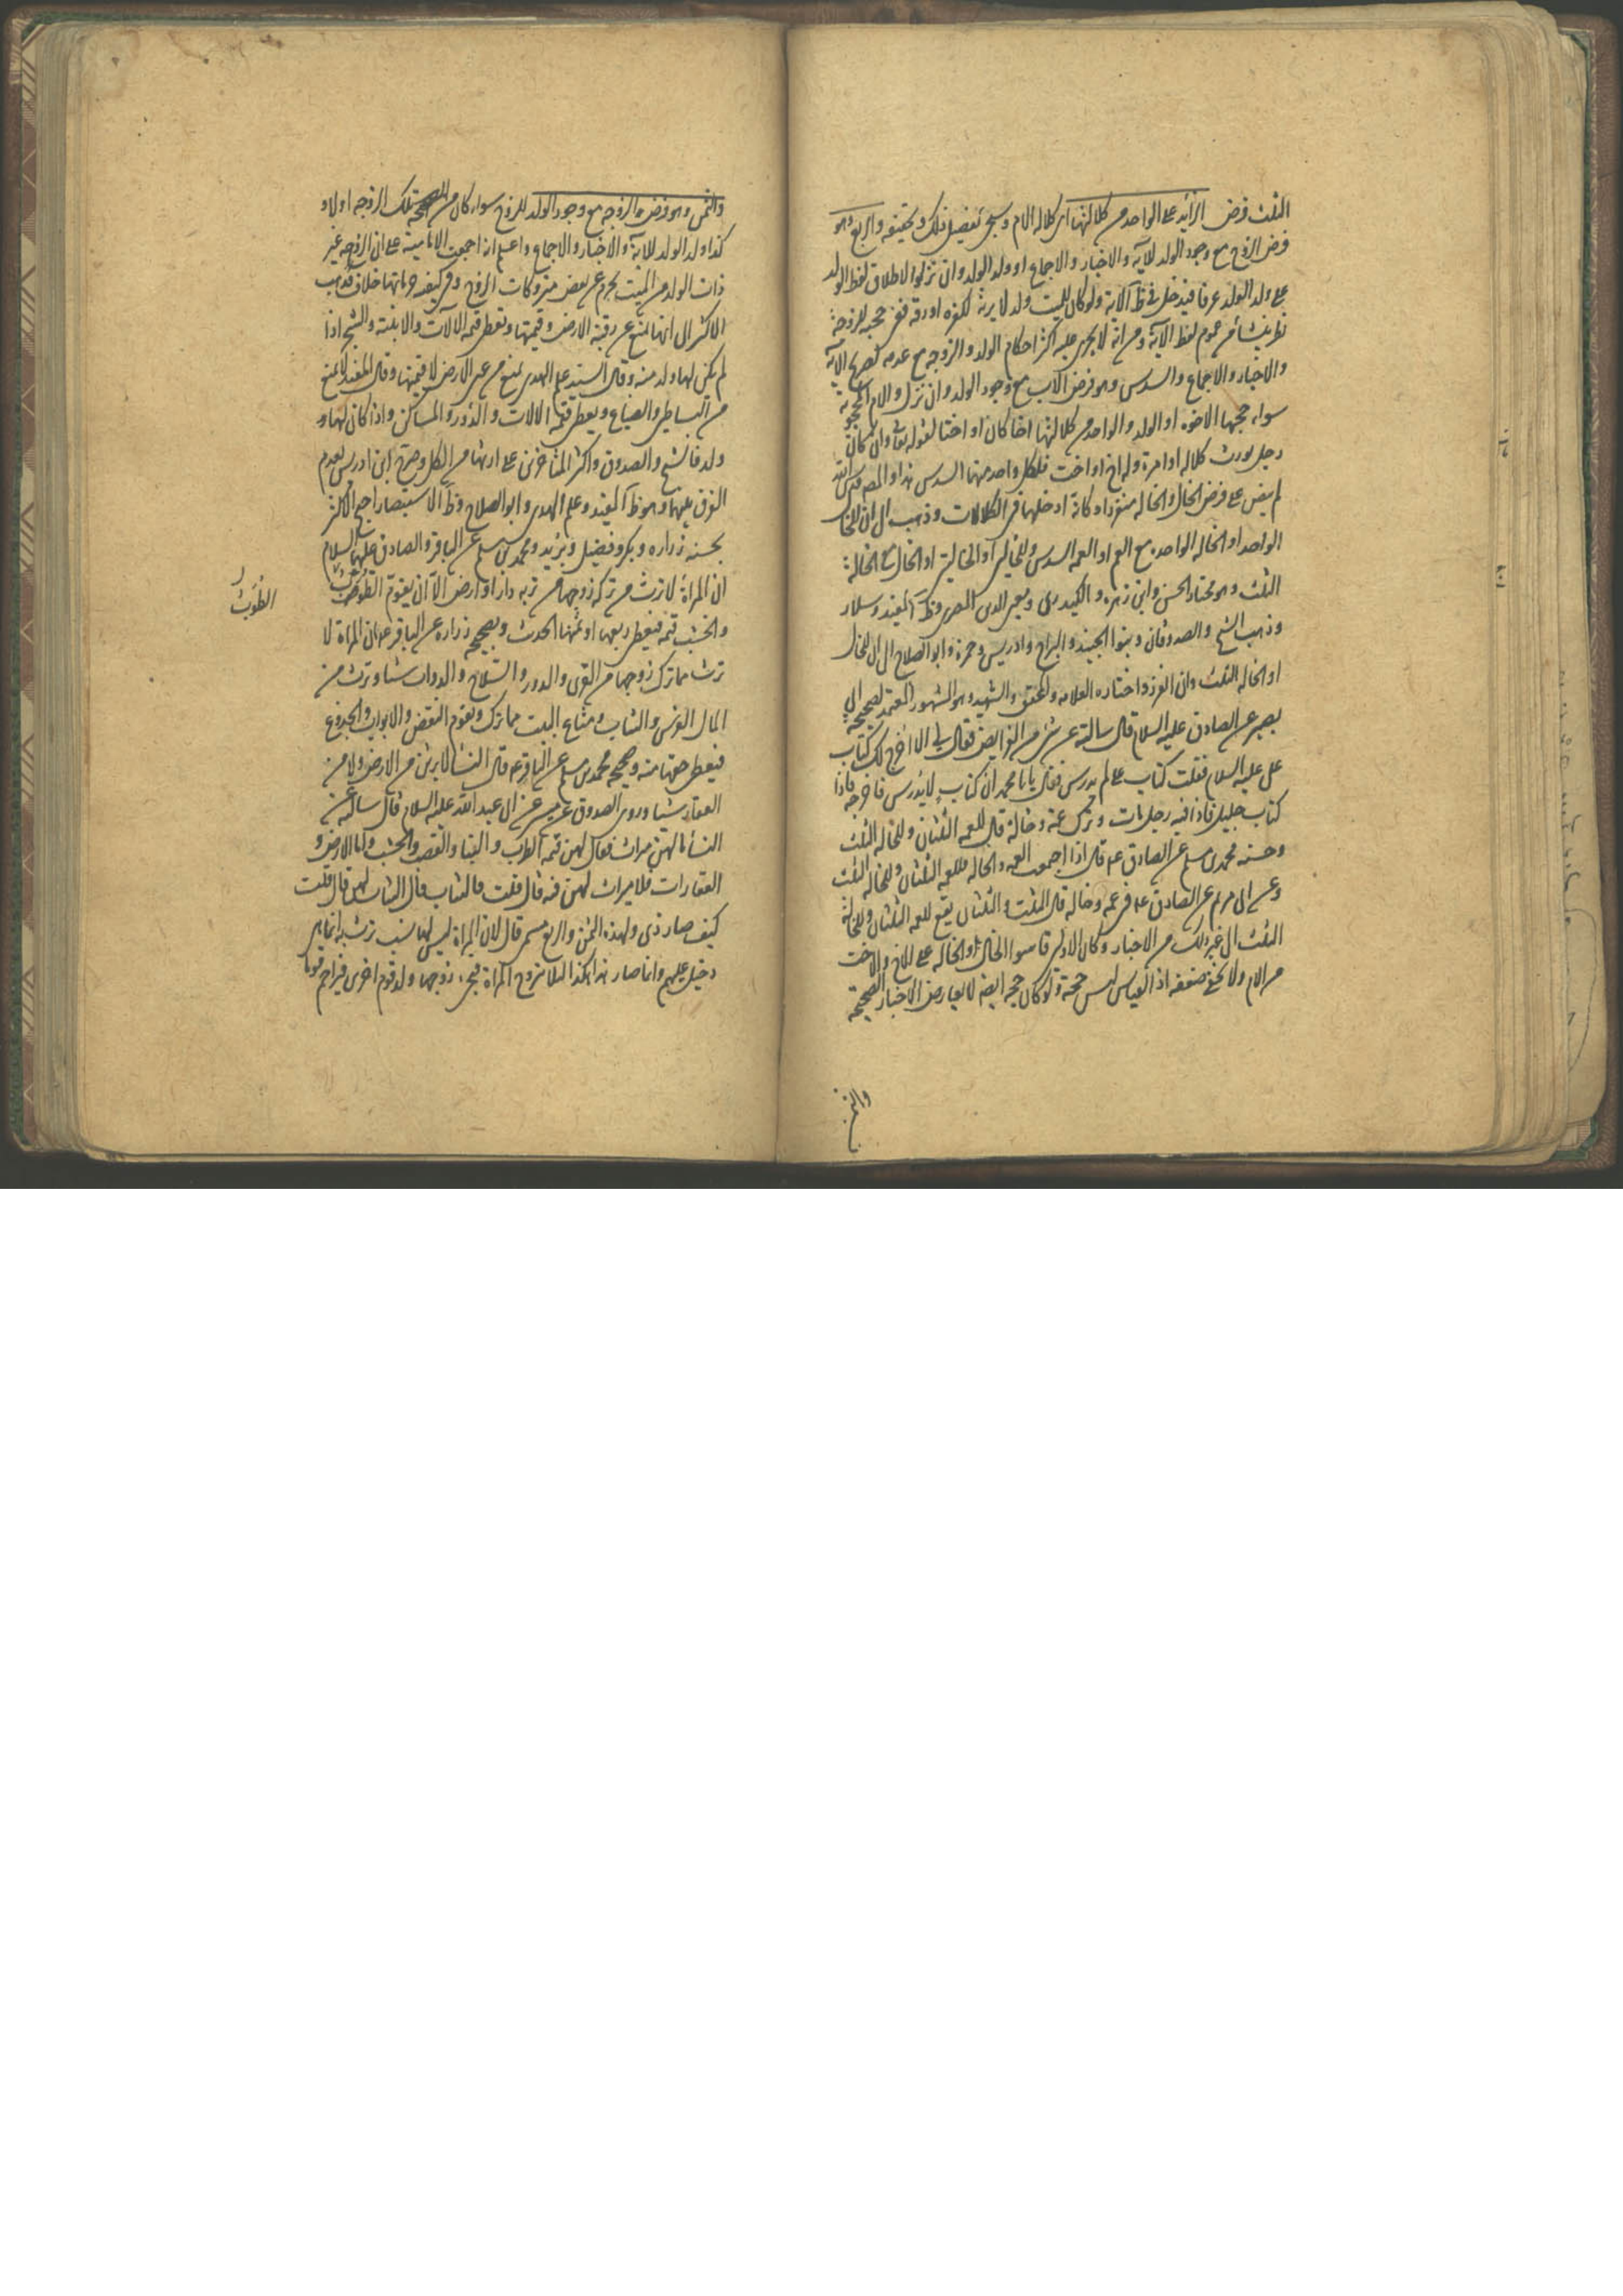 الثلث فرض الزائد على الواحد من كلالتها اى كلالة الام وسيجئ تفصيل ذلك وتحقيقه والربع وهو
فرض الزوج مع وجود الولد للآية والاخبار والاجماع او ولد الولد وان نزلوا لاطلاق لفظ الولد
على ولد الولد عرفا فيدخل فى ظ الآية ولو كان للميت ولد لا يرث لكفره او رقه ففى حجبه للزوجة
نظر ينشأ من عموم لفظ الآية ومن انه لا يجرى عليه اكثر احكام الولد والزوجة مع عدمه لصريح الآية
والاخبار والاجماع والسدس وهو فرض الاب مع وجود الولد وان نزل والام المحجوبة
سواء حجبها الاخوة او الولد والواحد من كلالتها اخا كان او اختا لقوله تعالى وان كان
رجل يورث كلالة او امرأة وله اخ او اخت فلكل واحد منهما السدس هذا والمصنف قدس الله
لم ينص على فرض الخال والخالة منفردا وكانه ادخلهما فى الكلالات وذهب الى ان للخال
الواحد او الخالة الواحدة مع العم او العمة السدس وللخالين او الخالتين او الخال مع الخالة
الثلث وهو مختار الحسن وابن زهرة والكيدرى ومعين الدين المصرى وظ المفيد وسلار
وذهب الشيخ والصدوقان وبنو الجنيد والبراج وادريس وحمزة وابو الصلاح الى ان للخال
او الخالة الثلث وان انفرد واختاره العلامة والمحقق والشهيد وهو المشهور المعتمد لصحيحة ابى
بصير عن الصادق عليه السلام قال سألته عن شئ من الفرايض فقال لى الا اخرج لك كتاب
على عليه السلام فقلت كتاب على لم يدرس فقال يا با محمد ان كتاب لا يدرس فاخرجه فاذا
كتاب جليل فاذا فيه رجل مات وترك عمة وخالة قال للعمة الثلثان وللخالة الثلث
وحسنة محمد بن مسلم عن الصادق ع قال اذا اجتمعت العمة والخالة فللعمة الثلثان وللخالة الثلث
وعن ابى مريم عن الصادق ع فى عمة وخالة قال الثلث والثلثان يعنى للعمة الثلثان وللخالة
الثلث الى غير ذلك من الاخبار وكان الاولين قاسوا الخال او الخالة على الاخ والاخت
من الام ولا يخفى ضعفه اذ القياس ليس حجة ولو كان حجة ايضا لا يعارض الاخبار الصحيحة
والثمن
والثمن وهو فرض الزوجة مع وجود الولد للزوج سواء كان من تلك الزوجة او لا و
كذا ولد الولد للآية والاخبار والاجماع واعلم انه اجمعت الامامية على ان الزوجة غير
ذات الولد من الميت تحرم عن بعض متروكات الزوج وفى كيفية حرمانها خلاف فذهب
الاكثر الى انها تمنع عن رقبة الارض وقيمتها وتعطى قيمة الآلات والابنية والشيخ اذا
لم يكن لها ولد منه وقال السيد علم الهدى تمنع من عين الارض لا قيمتها وقال المفيد لا تمنع
من البساتين والضياع ويعطى قيمة الآلات والدور والمساكن واذا كان لها و
ولد فالشيخ والصدوق واكثر المتأخرين على ارثها من الكل وصرح ابن ادريس بعدم
الفرق بينهما وهو ظ المفيد وعلم الهدى وابو الصلاح وظ الاستبصار احتج الاكثر
بحسنة زرارة وبكير وفضيل وبريد ومحمد بن مسلم عن الباقر والصادق عليهما السلام
ان المرأة لا ترث من تركة زوجها من تربة دار او ارض الا ان يقوم الطوب
والخشب قيمة فيعطى ربعها او ثمنها الحديث وصحيحة زرارة عن الباقر ع ان المرأة لا
ترث مما ترك زوجها من القرى والدور والسلاح والدواب شيئا وترث من
المال الفرش والثياب ومتاع البيت مما ترك ويقوم النقض والابواب والجذوع
فيعطى حقها منه وصحيحة محمد بن مسلم عن الباقر ع قال النساء لا يرثن من الارض ولا من
العقار شيئا وروى الصدوق عن ميسر عن ابى عبد الله عليه السلام قال سألته عن
النساء ما لهن ميراث فقال لهن قيمة الطوب والبناء والقصب والخشب واما الارض و
العقارات فلا ميراث لهن فيه قال قلت فالثياب قال الثياب لهن قال قلت
كيف صار ذى ولهذه الثمن والربع مسمى قال لان المرأة ليس لها نسب ترث به انما هى
دخيل عليهم وانما صار هذا هكذا لئلا تتزوج المرأة فيجئ زوجها وولد قوم اخرين فيزاحم قوما
الطوب